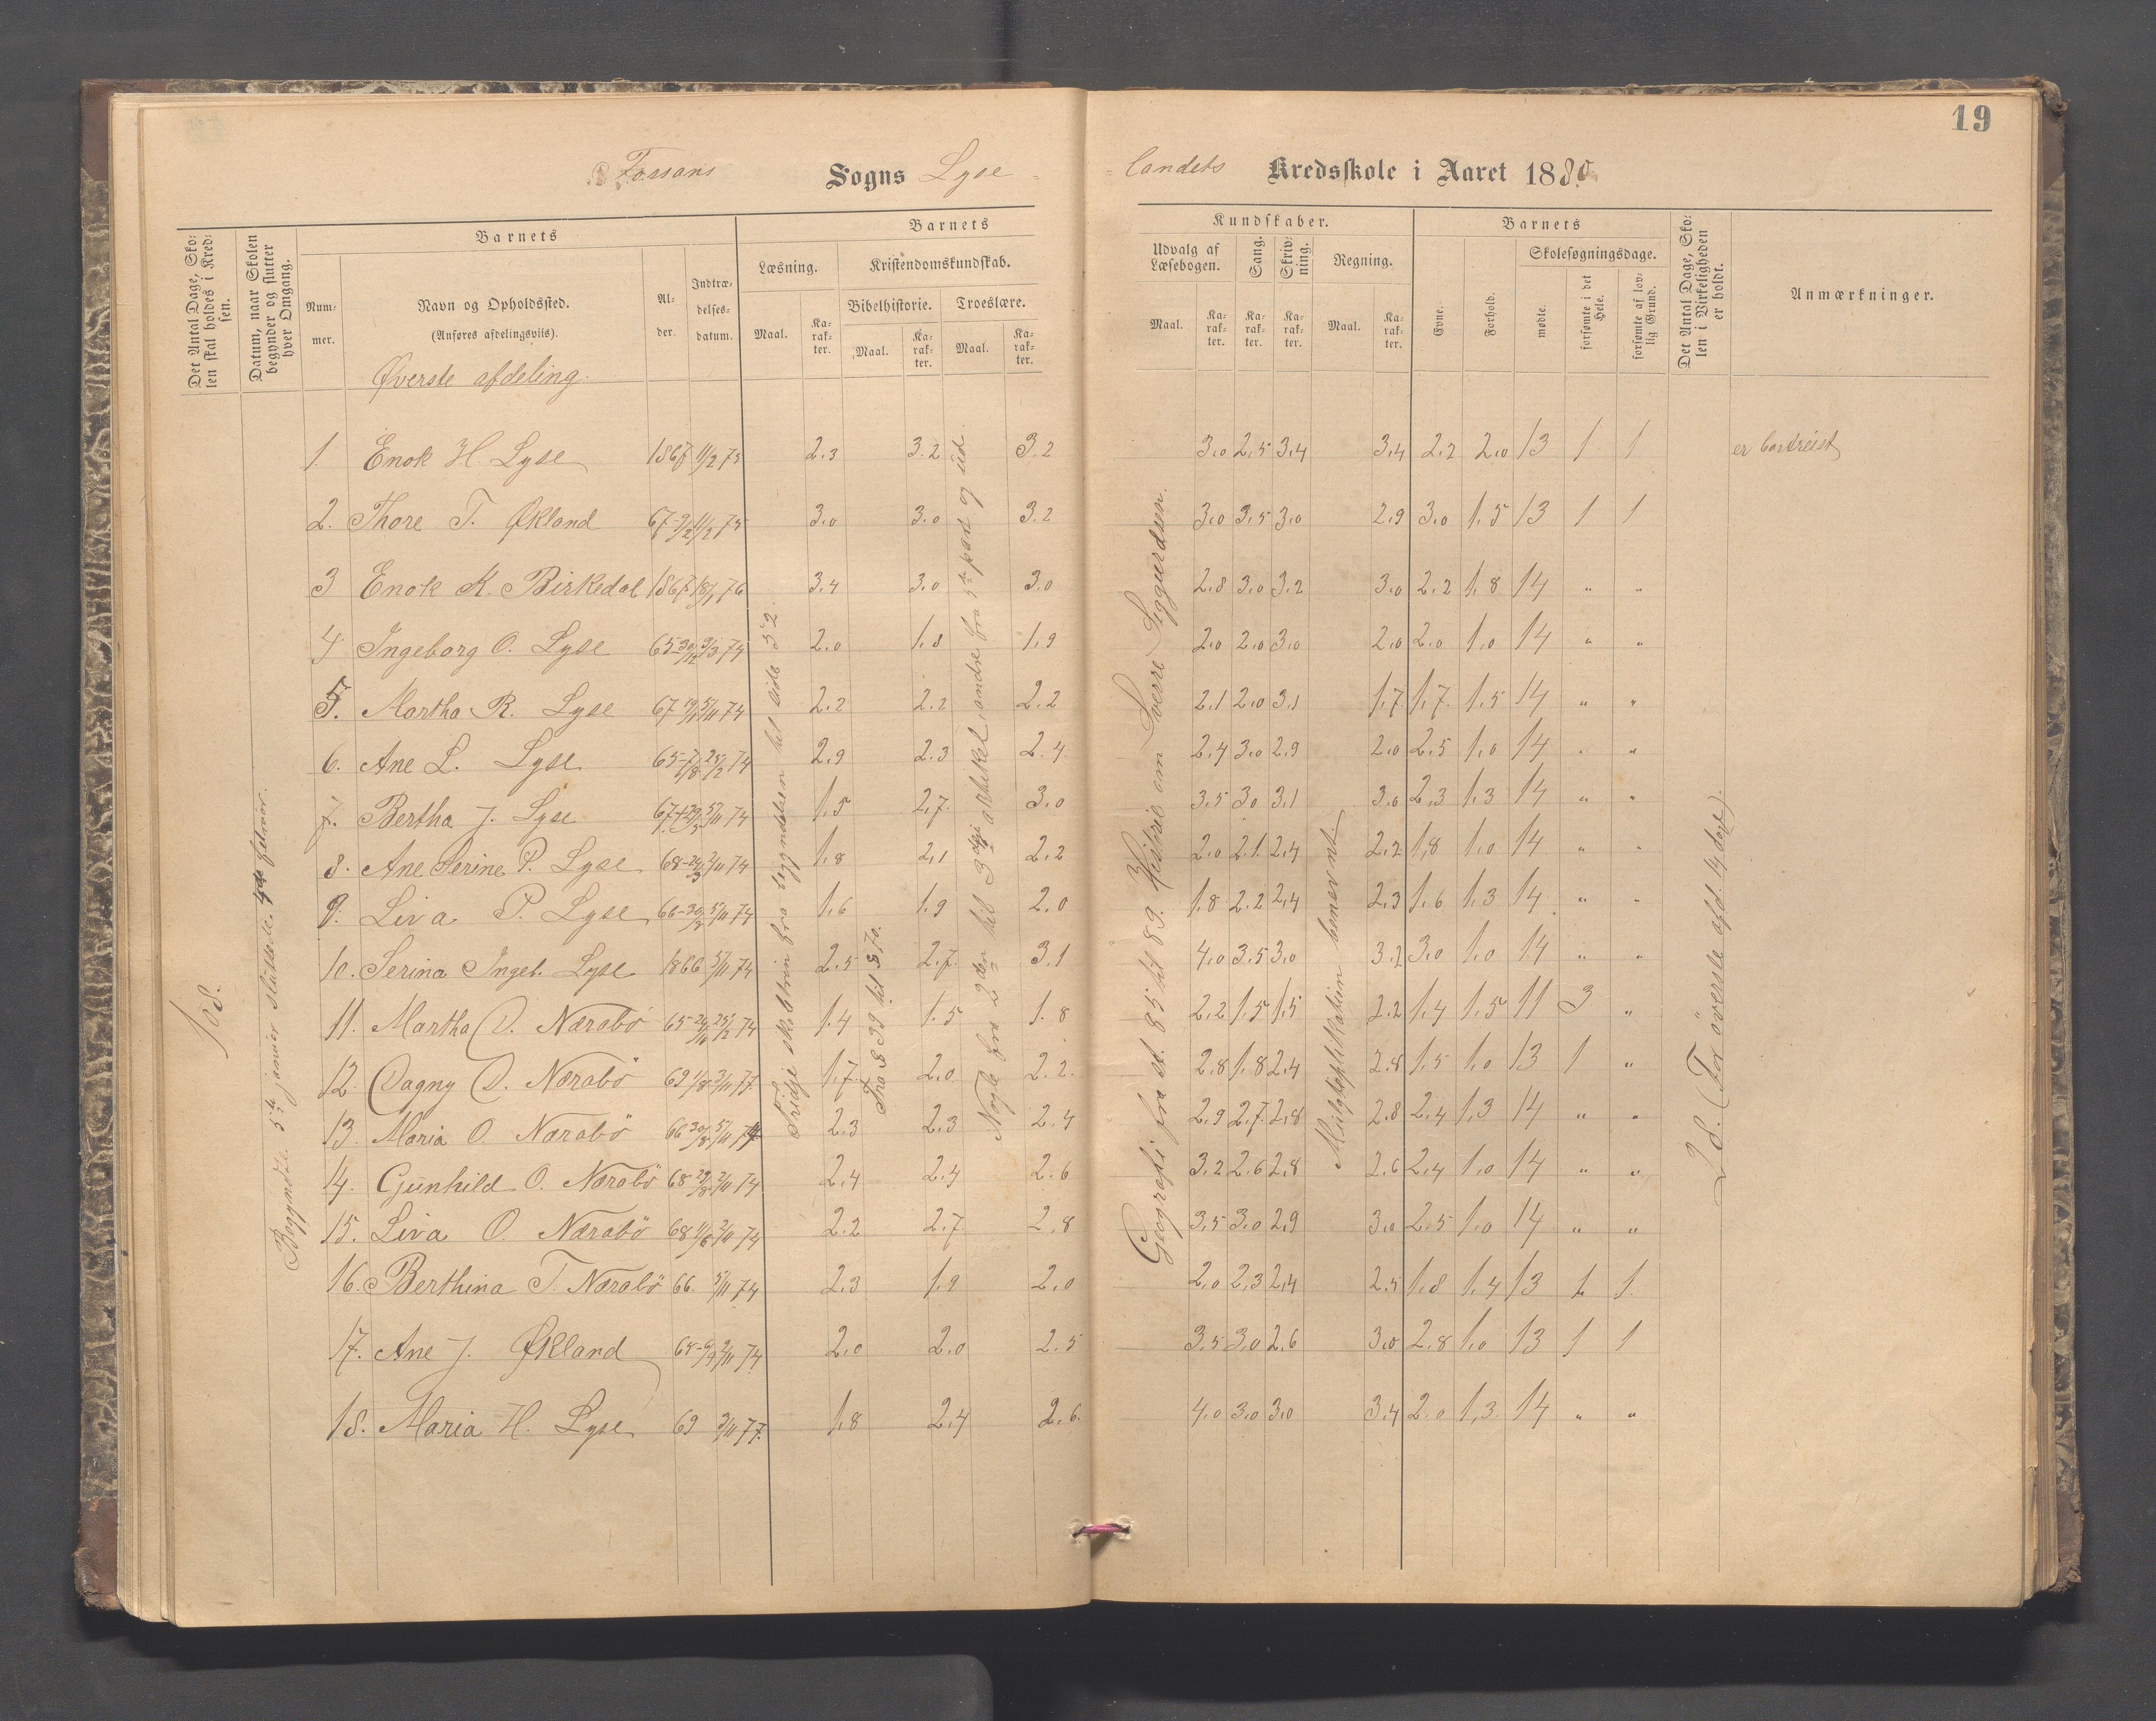 19
Fossans Sogns Lyse-
-landets Kredsskole i Aaret 1880.
Det Antal Dage, Sko-
len skal holdes i Kred-
sen.
Datum, naar Skolen
begynder og slutter
hver Omgang.
Barnets
Num-
mer.
Navn og Opholdssted.
(Anføres afdelingsviis).
Al-
der.
Indtræ-
delses-
datum.
Barnets
Læsning.
Kristendomskundskab.
Bibelhistorie.
Troeslære.
Maal.
Ka-
rak-
ter.
Maal.
Ka-
rak-
ter.
Maal.
Ka-
rak-
ter.
Kundskaber.
Udvalg af
Læsebogen.
Sang.
Skriv-
ning.
Regning.
Maal.
Ka-
rak-
ter.
Ka-
rak-
ter.
Ka-
rak-
ter.
Maal.
Ka-
rak-
ter.
Barnets
Evne.
Forhold.
Skolesøgningsdage.
mødte.
forsømte i det
Hele.
forsømte af lov-
lig Grund.
Det Antal Dage, Sko-
len i Virkeligheden
er holdt.
Anmærkninger.
Øverste afdeling.
1. Enok H. Lyse 1867 11/2 75 2.3 3.2 3.2 3.0 2.5 3.4 3.4 2.2 2.0 13 1 1 er bortreist
2. Thore T. Økland 67-9/2 11/2 75 3.0 3.0 3.2 3.0 3.5 3.0 2.9 3.0 1.5 13 1 1
3 Enok K. Birkedal 1867 18/1 76 3.4 3.0 3.0 2.8 3.0 3.2 3.0 2.2 1.8 14 " "
4 Ingeborg O. Lyse 65-30/12 3/3 74 2.0 1.8 1.9 2.0 2.0 3.0 2.0 2.0 1.0 14 " "
5. Martha R. Lyse 67 5/11 74 2.2 2.2 2.2 2.1 2.0 3.1 1.7 1.7 1.5 14 " "
6. Ane L. Lyse 65-7/8 25/2 74 2.9 2.3 2.4 2.4 3.0 2.9 2.0 2.5 1.0 14 " "
7. Bertha J. Lyse 67 5/11 74 1.5 2.7 3.0 3.5 3.0 3.1 3.0 2.3 1.3 14 " "
8. Ane Serine P. Lyse 68 2/11 74 1.8 2.1 2.2 2.0 2.1 2.4 2.2 1.8 1.0 14 " "
9. Liva P. Lyse 66 5/11 74 1.6 1.9 2.0 1.8 2.2 2.4 2.3 1.6 1.3 14 " "
10. Serina Ingeb. Lyse 1866 5/11 74 2.5 2.7 3.1 4.0 3.5 3.0 3.2 3.0 1.0 14 " "
11. Martha D. Nærabö 65 25/2 74 1.4 1.5 1.8 2.2 1.5 1.5 2.2 1.4 1.5 11 3 "
12. Dagny D. Nærabö 69 1/8 3/11 77 1.7 2.0 2.2 2.8 1.8 2.4 2.8 1.5 1.0 13 1 "
13. Maria O. Nærabö 66 30/8 5/11 74 2.3 2.3 2.4 2.9 2.7 2.8 2.8 2.4 1.3 14 " "
14. Gunhild O. Nærabö 68 29/8 2/11 74 2.4 2.4 2.6 3.2 2.6 2.8 2.6 2.4 1.0 14 " "
15. Liva O. Nærabö 68 2/11 74 2.2 2.7 2.8 3.5 3.0 2.9 3.0 2.5 1.0 14 " "
16. Berthina T. Nærabö 66. 5/11 74 2.3 1.9 2.0 2.0 2.3 2.4 2.5 1.8 1.4 13 1 1
17. Ane J. Økland 2/11 74 2.0 2.0 2.5 3.5 3.0 2.6 3.0 2.8 1.0 13 1 1
18. Maria H. Lyse 69 3/11 77 1.8 2.4 2.6 4.0 3.0 3.0 3.4 2.0 1.3 14 " "
Begyndte 5te januar sluttede februar.
Tredje skoletrin fra begyndelsen til side 52.
Fra § 39 til § 70.
Nogle fra 2den til 3die artikel, andre fra 5te part og ud.
Geografi fra st. 85 til 89. Historie om Sverre Siggurdsen.
Multiplikation benævnt
28. (For överste afd. 14 dage).